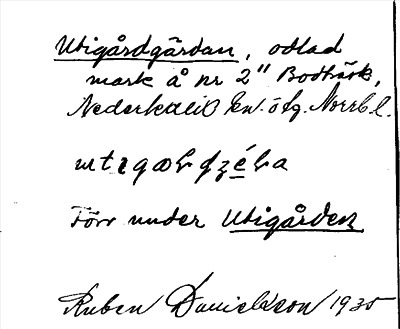 Utigårdgärdan, odlad
mark å nr 2" Bodträsk,
Nederkalix sn. ö tg. Norrb. l.
Förr under Utigården
Ruben Danielsson 1935